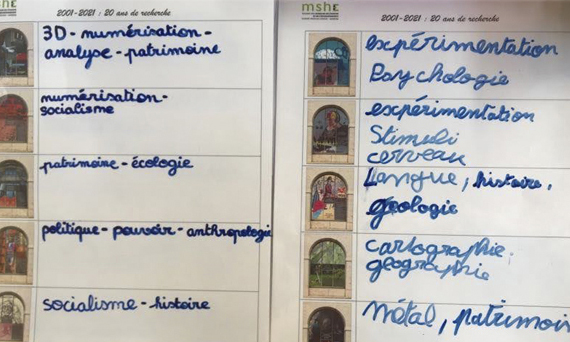 2001-2021 : 20 ans de recherche
3D - numérisation -
analyse - patrimoine
numérisation -
socialisme
patrimoine - écologie
politique - pouvoir - anthropologie
socialisme - histoire
mshe
2001-2021 : 20 ans de recherche
expérimentation
Psychologie
expérimentation
Stimuli
cerveau
Langue, histoire,
géologie
cartographie.
géographie
Métal, patrimoin